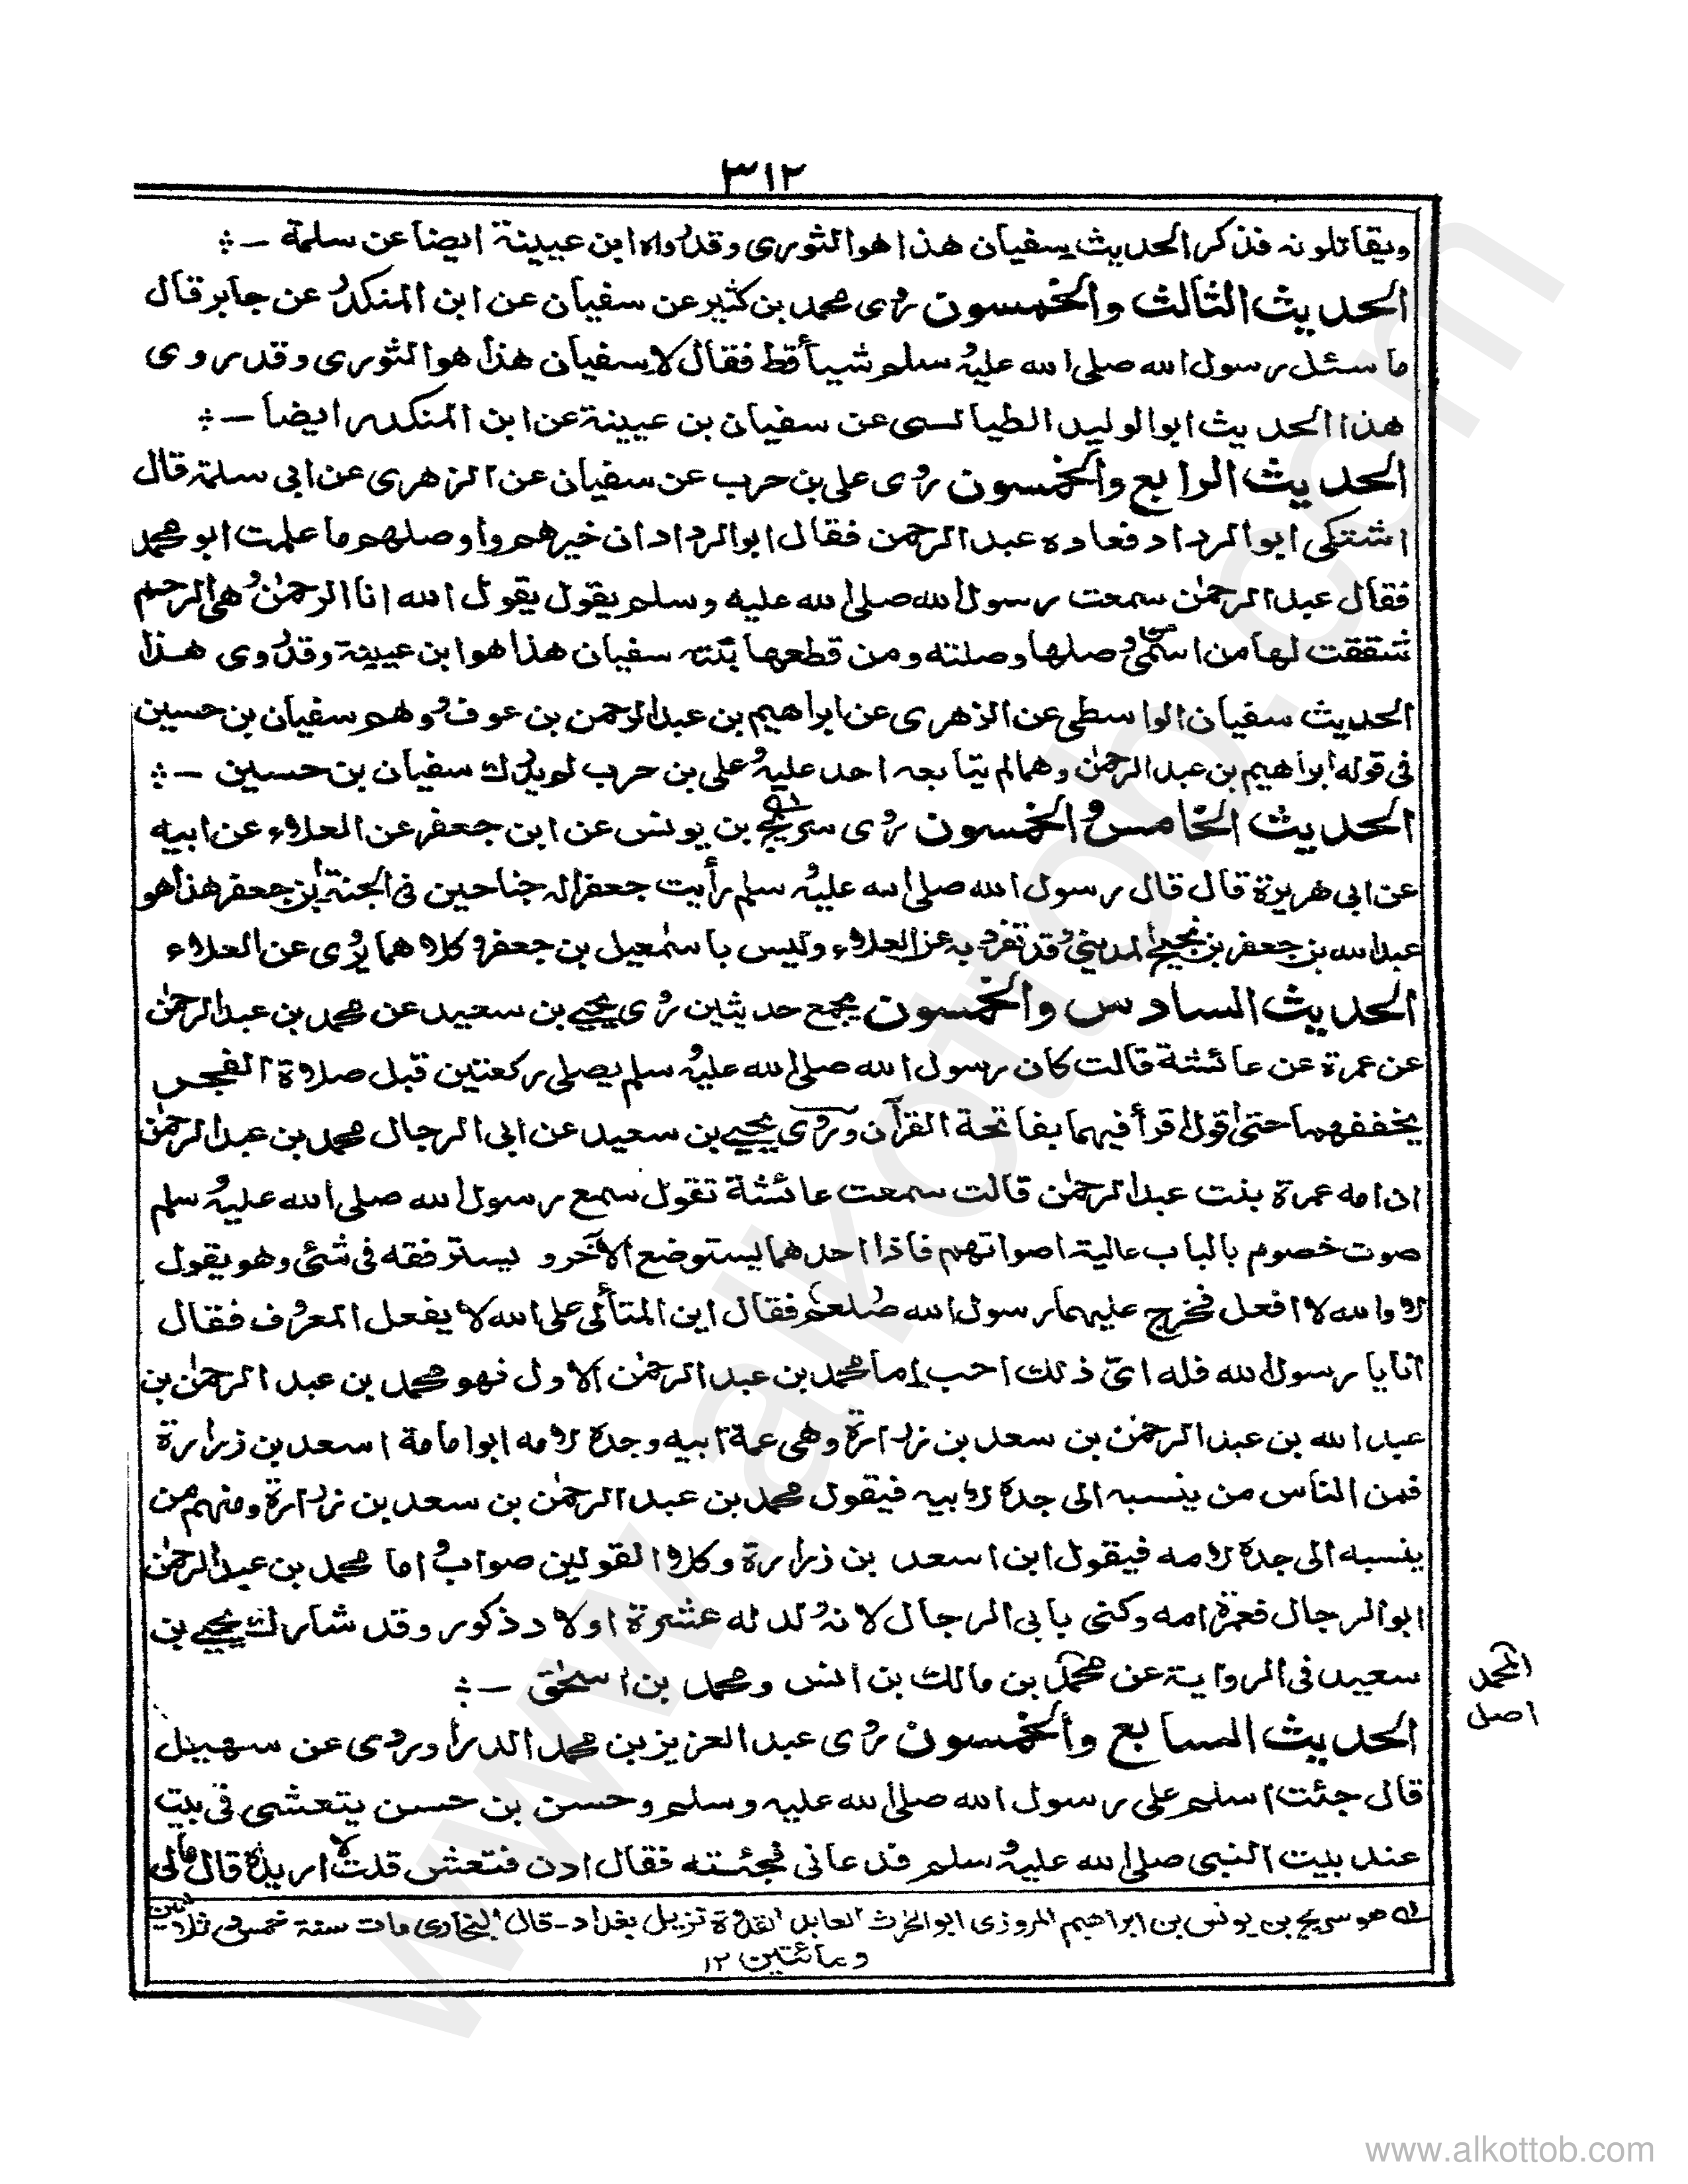 ٣١٢
ويقاتلونه فذكر الحديث سفيان هذا هو الثوري وقد رواه ابن عيينة ايضا عن سلمة -
الحديث الثالث والخمسون روى محمد بن كثير عن سفيان عن ابن المنكدر عن جابر قال
ما سئل رسول الله صلى الله عليه وسلم شيأ قط فقال لا سفيان هذا هو الثورى وقد روى
هذا الحديث ابو الوليد الطيالسى عن سفيان بن عيينة عن ابن المنكدر ايضا -
الحديث الرابع والخمسون روى على بن حرب عن سفيان عن الزهرى عن ابى سلمة قال
اشتكى ابو الرداد فعاده عبد الرحمن فقال ابو الرداد ان خيرهم واوصلهم ما علمت ابو محمد
فقال عبد الرحمٰن سمعت رسول الله صلى الله عليه وسلم يقول يقول الله انا الرحمٰن وهى الرحم
شققت لها من اسمى وصلها وصلته ومن قطعها بتته سفيان هذا هو ابن عيينة وقد روى هذا
الحديث سفيان الواسطى عن الزهرى عن ابراهيم بن عبد الرحمن بن عوف وهم سفيان بن حسين
فى قوله ابراهيم بن عبد الرحمٰن وهما لم يتابعه احد عليه وعلى بن حرب لم يدرك سفيان بن حسين -
الحديث الخامس والخمسون روى سريج بن يونس عن ابن جعفر عن العلاء عن ابيه
عن ابى هريرة قال قال رسول الله صلى الله عليه وسلم رأيت جعفرا له جناحين فى الجنة ابن جعفر هذا هو
عبد الله بن جعفر بن نجيح المدينى وقد تفرد به عن العلاء وليس باسمٰعيل بن جعفر وكلاهما يروى عن العلاء
الحديث السادس والخمسون يجمع حديثين روى يحيى بن سعيد عن محمد بن عبد الرحمٰن
عن عمرة عن عائشة قالت كان رسول الله صلى الله عليه وسلم يصلى ركعتين قبل صلاة الفجر
يخففهما حتى اقول اقرأ فيهما بفاتحة القرآن وروى يحيى بن سعيد عن ابى الرجال محمد بن عبد الرحمٰن
ان امه عمرة بنت عبد الرحمٰن قالت سمعت عائشة تقول سمع رسول الله صلى الله عليه وسلم
صوت خصوم بالباب عالية اصواتهم فاذا احدهما يستوضع الآخر و يسترفقه فى شئ وهو يقول
لا والله لا افعل فخرج عليهما رسول الله صلعم فقال اين المتألى على الله لا يفعل المعروف فقال
انا يا رسول الله فله اىّ ذلك احب اما محمد بن عبد الرحمٰن الاول فهو محمد بن عبد الرحمٰن بن
عبد الله بن عبد الرحمٰن بن سعد بن زرارة وهى عمة ابيه وجده لامه ابو امامة اسعد بن زرارة
فمن الناس من ينسبه الى جده لابيه فيقول محمد بن عبد الرحمٰن بن سعد بن زرارة ومنهم من
ينسبه الى جده لامه فيقول ابن اسعد بن زرارة وكلا القولين صواب واما محمد بن عبد الرحمٰن
ابو الرجال فعمرة امه وكنى بابى الرجال لانه ولد له عشرة اولاد ذكور وقد شارك يحيى بن
سعيد فى الرواية عن محمد بن مالك بن انس ومحمد بن اسحٰق -
المحمد
اصل
الحديث السابع والخمسون روى عبد العزيز بن محمد الدراوردى عن سهيل
قال جئت اسلم على رسول الله صلى الله عليه وسلم وحسن بن حسن يتعشى فى بيت
عند بيت النبى صلى الله عليه وسلم فدعانى فجئته فقال ادن فتعش قلت لا اريده قال مالى
له هو سريج بن يونس بن ابراهيم المروزى ابو الحرث العابد القدوة نزيل بغداد - قال البخارى مات سنة خمس وثلاثين
ومائتين ١٢
www.alkottob.com
www.alkottob.com